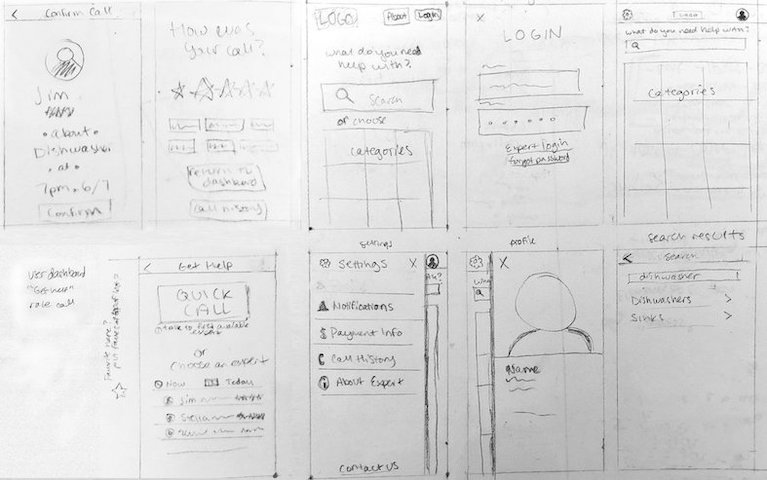 Confirm Call
Jim
• about •
Dishwasher
• at •
7pm, 6/7
Confirm
How was
your call?
return to
dashboard
Call History
LOGO
About
Login
what do you need
help with?
Search
or choose
Categories
X
LOGIN
Expert login
forgot password
what do you need help with?
Categories
user dashboard
"Get help"
rate call
Get Help
QUICK
CALL
or
choose an expert
Now
Today
Jim
Stella
settings
Settings
X
Notifications
Payment Info
Call History
About Expert
Contact us
profile
X
Name
search results
Search
dishwasher
Dishwashers >
Sinks >